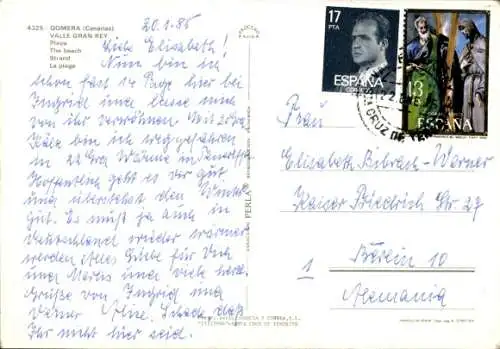 4325 GOMERA (Canarias)
VALLE GRAN REY
Playa
The beach
Strand
La plage
20.1.85
Liebe Elisabeth!
Nun bin ich
schon fast 14 Tage hier bei
Ingrid und lasse mich
von ihr verwöhnen. Mit 20 Grad
Kälte bin ich weggefahren
in 22 Grad Wärme in Teneriffa
Hoffentlich geht es dir gut
und überstehst den Winter
gut. Es muß ja auch in
Deutschland wieder wärmer
werden. Alles Liebe für Dich
und und viele herzl.
Grüße von Ingrid und
Deiner Schade daß
Ihr nicht hier seid.
PERLA
17
PTA
ESPAÑA
CORREOS
13
ESPAÑA
CRUZ DE TEN
Frau
Elisabeth Bibrach-Werner
Kaiser Friedrich Str 27
1
Berlin 10
Alemania